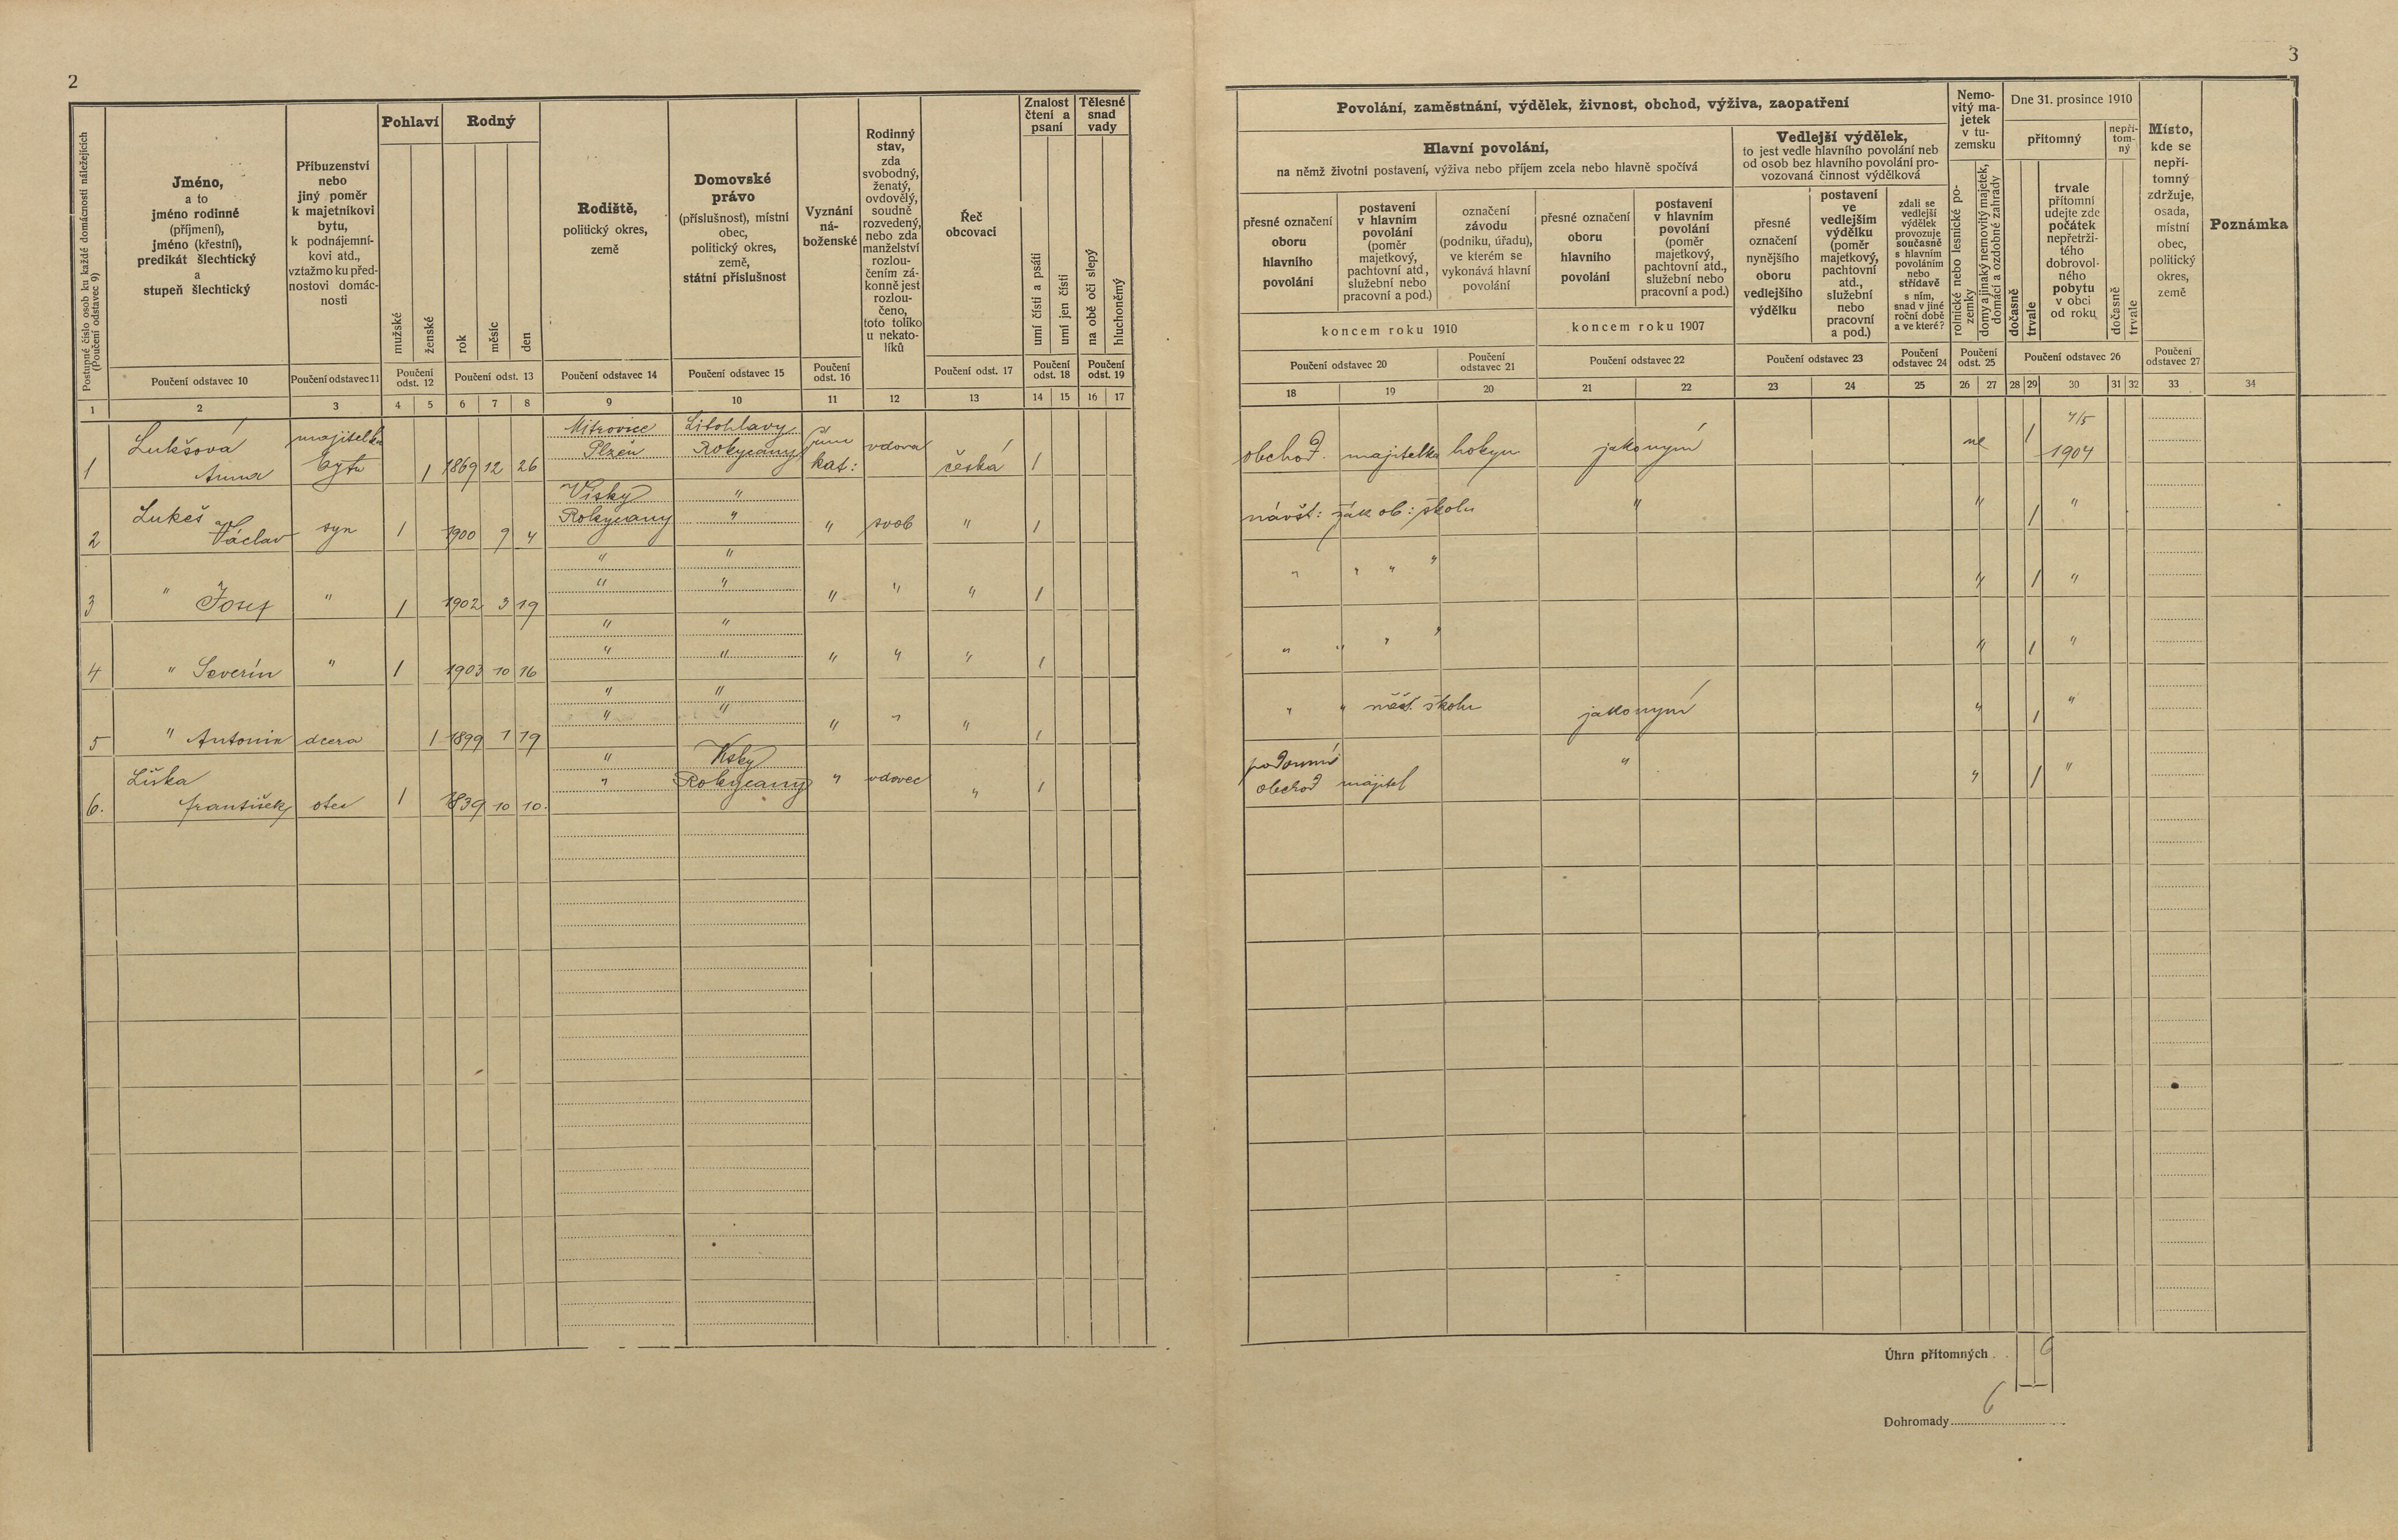 2
3
Postupné číslo osob ku každé domácnosti náležejících
(Poučení odstavec 9)
Jméno,
a to
jméno rodinné
(příjmení),
jméno (křestní),
predikát šlechtický
a
stupeň šlechtický
Příbuzenství
nebo
jiný poměr
k majetníkovi
bytu,
k podnájemní-
kovi atd.,
vztažmo ku před-
nostovi domác-
nosti
Pohlaví
mužské
ženské
Rodný
rok
měsíc
den
Rodiště,
politický okres,
země
Domovské
právo
(příslušnost), místní
obec,
politický okres,
země,
státní příslušnost
Vyznání
ná-
boženské
Rodinný
stav,
zda
svobodný,
ženatý,
ovdovělý,
soudně
rozvedený,
nebo zda
manželství
rozlou-
čením zá-
konně jest
rozlou-
čeno,
toto toliko
u nekato-
líků
Řeč
obcovací
Znalost
čtení a
psaní
umí čísti a psáti
umí jen čísti
Tělesné
snad
vady
na obě oči slepý
hluchoněmý
Poučení odstavec 10
Poučení odstavec 11
Poučení
odst. 12
Poučení odst. 13
Poučení odstavec 14
Poučení odstavec 15
Poučení
odst. 16
Poučení odst. 17
Poučení
odst. 18
Poučení
odst. 19
1 2 3 4 5 6 7 8 9 10 11 12 13 14 15 16 17
Povolání, zaměstnání, výdělek, živnost, obchod, výživa, zaopatření
Hlavní povolání,
na němž životní postavení, výživa nebo příjem zcela nebo hlavně spočívá
přesné označení
oboru
hlavního
povolání
postavení
v hlavním
povolání
(poměr
majetkový,
pachtovní atd.,
služební nebo
pracovní a pod.)
označení
závodu
(podniku, úřadu),
ve kterém se
vykonává hlavní
povolání
koncem roku 1910
přesné označení
oboru
hlavního
povolání
postavení
v hlavním
povolání
(poměr
majetkový,
pachtovní atd.,
služební nebo
pracovní a pod.)
koncem roku 1907
Vedlejší výdělek,
to jest vedle hlavního povolání neb
od osob bez hlavního povolání pro-
vozovaná činnost výdělková
přesné
označení
nynějšího
oboru
vedlejšího
výdělku
postavení
ve
vedlejším
výdělku
(poměr
majetkový,
pachtovní
atd.,
služební
nebo
pracovní
a pod.)
zdali se
vedlejší
výdělek
provozuje
současně
s hlavním
povoláním
nebo
střídavě
s ním,
snad v jiné
roční době
a ve které?
Nemo-
vitý ma-
jetek
v tu-
zemsku
rolnické nebo lesnické po-
zemky
domy a jinaký nemovitý majetek,
domácí a ozdobné zahrady
Dne 31. prosince 1910
přítomný
dočasně
trvale
trvale
přítomní
udejte zde
počátek
nepřetrži-
tého
dobrovol-
ného
pobytu
v obci
od roku
nepří-
tom-
ný
dočasně
trvale
Místo,
kde se
nepří-
tomný
zdržuje,
osada,
místní
obec,
politický
okres,
země
Poznámka
Poučení odstavec 20
Poučení
odstavec 21
Poučení odstavec 22
Poučení odstavec 23
Poučení
odstavec 24
Poučení
odst. 25
Poučení odstavec 26
Poučení
odstavec 27
18 19 20 21 22 23 24 25 26 27 28 29 30 31 32 33 34
Lukšová majitelka Mitrovice Litohlavy
1 Anna bytu 1 1869 12 26 Plzeň Rokycany kat: vdova česká 1
obchod. majitelka hokyn jakonyní ne 1 7/5
1904
Lukeš Visky "
2 Václav syn 1 1900 9 4 Rokycany " " svob " 1
návšt: žák ob: školu " " 1 "
" "
3 " Josef " 1 1902 3 19 " " " " " 1
" " " " " 1 "
" "
4 " Severín " 1 1903 10 16 " " " " " 1
" " " " " 1 "
" "
5 " Antonie dcera 1 1899 1 19 " " " " " 1
" " měst. školu jakonyní " 1 "
Liška " Visky
6. František otec 1 1839 10 10. " Rokycany " vdovec " 1
podomní " " 1 "
obchod majitel
Úhrn přítomných . 6
Dohromady 6